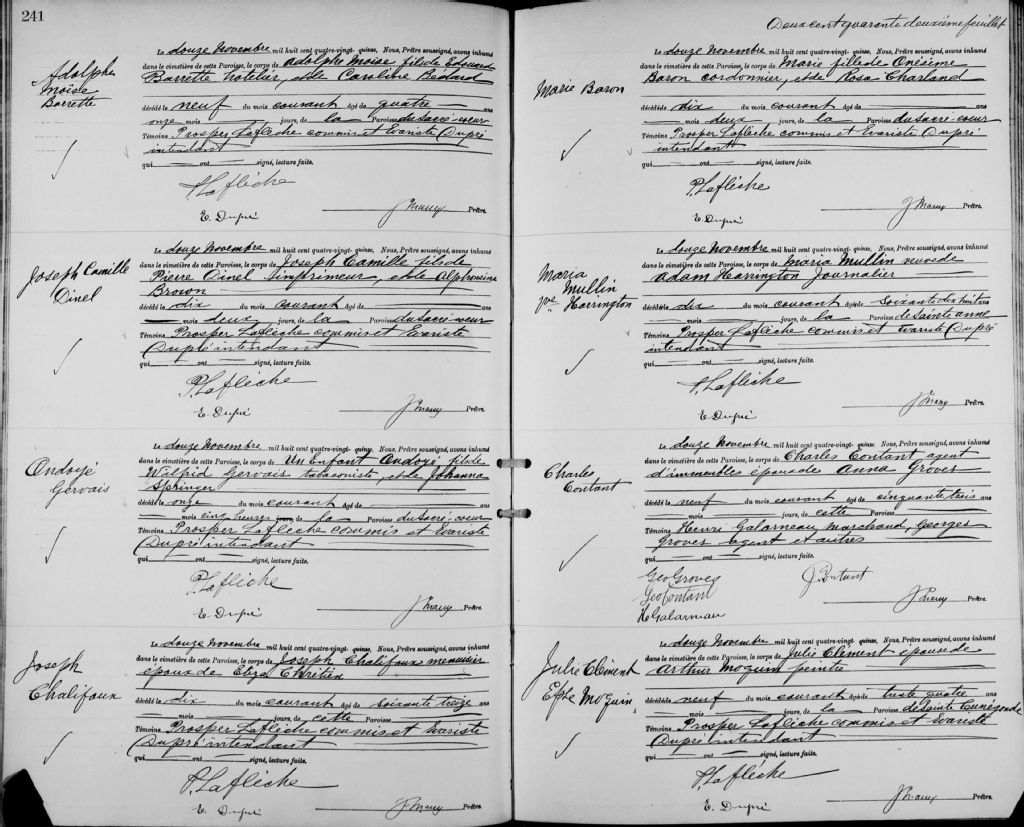 241
Adolphe
Moïse
Barrette
Le douze Novembre mil huit cent quatre-vingt- quinze, Nous, Prêtre soussigné, avons inhumé
dans le cimetière de cette Paroisse, le corps de Adolphe Moise fils de Edouard
Barrette hotelier, et de Caroline Bédard
décédé le neuf du mois courant âgé de quatre ans
onze mois jours, de la Paroisse du Sacré-coeur
Témoins Prosper Laflèche commis et Evariste Dupré
intendant
qui ont signé, lecture faite.
P. Laflèche
E. Dupré
Prêtre.
Joseph Camille
Dinel
Le douze Novembre mil huit cent quatre-vingt- quinze, Nous, Prêtre soussigné, avons inhumé
dans le cimetière de cette Paroisse, le corps de Joseph Camille fils de
Pierre Dinel imprimeur, et de Alphonsina
Brown
décédé le dix du mois courant âgé de
mois deux jours, de la Paroisse du Sacré-coeur
Témoins Prosper Laflèche commis et Evariste
Dupré intendant
qui ont signé, lecture faite.
P. Laflèche
E. Dupré
Prêtre.
Ondoyé
Gervais
Le douze Novembre mil huit cent quatre-vingt- quinze, Nous, Prêtre soussigné, avons inhumé
dans le cimetière de cette Paroisse, le corps de Un Enfant Ondoyé fils de
Wilfrid Gervais tabaconiste, et de Johanna
Springer
décédé le onze du mois courant âgé de
mois cinq heures jours, de la Paroisse du Sacré-coeur
Témoins Prosper Laflèche commis et Evariste
Dupré intendant
qui ont signé, lecture faite.
P. Laflèche
E. Dupré
Prêtre.
Joseph
Chalifoux
Le douze Novembre mil huit cent quatre-vingt- quinze, Nous, Prêtre soussigné, avons inhumé
dans le cimetière de cette Paroisse, le corps de Joseph Chalifoux menuisier
époux de Eliza Chrétien
décédé le dix du mois courant âgé de soixante treize ans
mois jours, de cette Paroisse
Témoins Prosper Laflèche commis et Evariste
Dupré intendant
qui ont signé, lecture faite.
P. Laflèche
E. Dupré
Prêtre.
Deux cent quarante deuxième feuillet
Marie Baron
Le douze Novembre mil huit cent quatre-vingt- quinze, Nous, Prêtre soussigné, avons inhumé
dans le cimetière de cette Paroisse, le corps de Marie fille de Onésime
Baron cordonnier, et de Rosa Charland
décédé le dix du mois courant âgé de ans
mois deux jours, de la Paroisse du Sacré-coeur
Témoins Prosper Laflèche commis et Evariste Dupré
intendant
qui ont signé, lecture faite.
P. Laflèche
E. Dupré
Prêtre.
Maria
Mullin
Vve Harrington
Le douze Novembre mil huit cent quatre-vingt- quinze, Nous, Prêtre soussigné, avons inhumé
dans le cimetière de cette Paroisse, le corps de Maria Mullin veuve de
Adam Harrington Journalier
décédé le dix du mois courant âgé de soixante dix huit ans
mois jours, de la Paroisse de Sainte Anne
Témoins Prosper Laflèche commis et Evariste Dupré
intendant
qui ont signé, lecture faite.
P. Laflèche
E. Dupré
Prêtre.
Charles
Contant
Le douze Novembre mil huit cent quatre-vingt- quinze, Nous, Prêtre soussigné, avons inhumé
dans le cimetière de cette Paroisse, le corps de Charles Contant agent
d'immeubles époux de Anna Groves
décédé le neuf du mois courant âgé de cinquante trois ans
mois jours, de cette Paroisse
Témoins Henri Galarneau marchand, Georges
Groves agent et autres
qui ont signé, lecture faite.
Geo Groves
J. Contant
Geo Contant
H Galarneau
Prêtre.
Julie Clément
Epse Moquin
Le douze Novembre mil huit cent quatre-vingt- quinze, Nous, Prêtre soussigné, avons inhumé
dans le cimetière de cette Paroisse, le corps de Julie Clément épouse de
Arthur Moquin peintre
décédé le neuf du mois courant âgé de trente quatre ans
mois jours, de la Paroisse de Sainte Cunégonde
Témoins Prosper Laflèche commis et Evariste
Dupré intendant
qui ont signé, lecture faite.
P. Laflèche
E. Dupré
Prêtre.